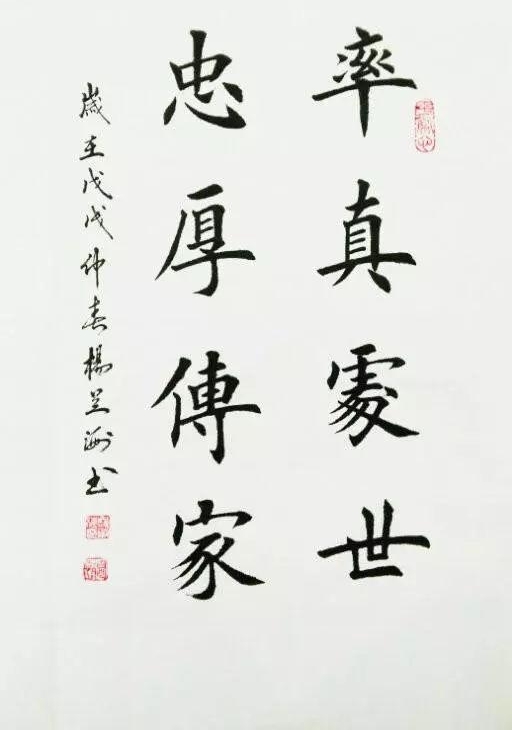 率真處世
忠厚傳家
歲在戊戌仲春楊蘭洲书